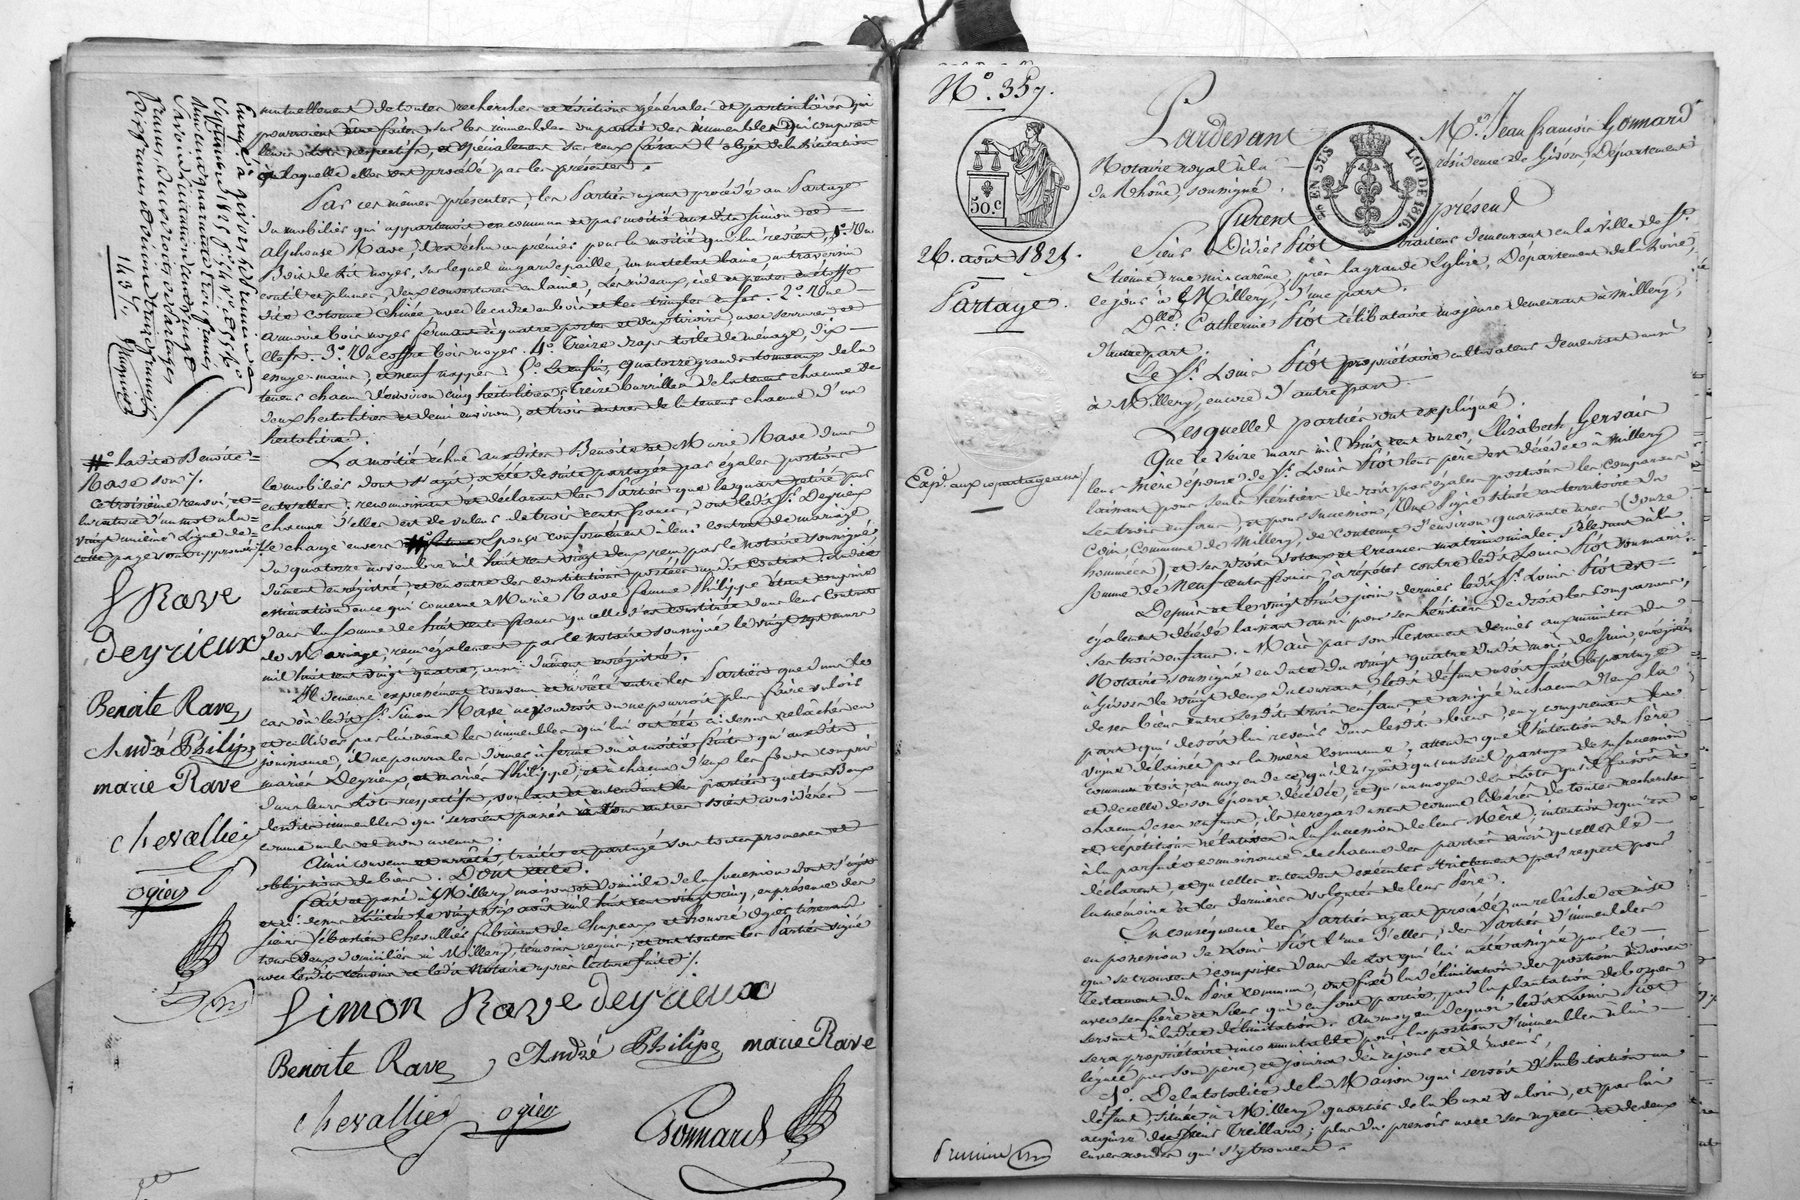 mutuellement de toutes recherches et évictions générales et particulières qui
pourroient être faites sur les immeubles ou partie des immeubles qui composent
leurs lots respectifs, et spécialement sur ceux faisant l'objet de la licitation
à laquelle elles ont procédé par les présentes.
Par ces mêmes présentes, les Parties ayant procédé au Partage
du mobilier qui appartenoit en commun et par moitié auxdits Simon et
Alphonse Rave, il est échu au premier pour la moitié qui lui revient, 1º Un
Bois de lit noyer, sur lequel un garde paille, un matelat laine, un traversin
coutil et plumes, deux couvertures en laine, les rideaux, ciel et pentes en étoffe
dite cotonne chinée, avec le cadre en bois et les tringles de fer. 2º Une
armoire bois noyer fermant à quatre portes et deux tiroirs, avec serrures et
clefs. 3º Un coffre bois noyer. 4º Treize draps toile de ménage, dix
essuye-mains, et neuf nappes. 5º Enfin, quatorze grands tonneaux de la
teneur chacun d'environ cinq hectolitres, treize barrilles de la teneur chacune de
deux hectolitres et demi environ, et trois autres de la teneur chacune d'un
hectolitre.
La moitié échue auxdites Benoite et Marie Rave dans
le mobilier dont s'agit a été de suite partagée par égales portions
entr'elles; reconnoissant et déclarant les Parties que le quart retiré par
chacune d'elles est de valeur de trois cents francs, dont ledit Sr. Deyrieux
se charge envers son épouse conformément à leur contrat de mariage
du quatorze novembre mil huit cent vingt deux, reçu par le notaire soussigné,
dûment enregistré, et en outre des constitutions portées audit contrat; ladite
estimation en ce qui concerne Marie Rave femme Philippe étant comprise
dans la somme de huit cents francs qu'elle s'est constituée dans leur contrat
de Mariage, reçu également par le notaire soussigné le vingt sept mars
mil huit cent vingt quatre, aussi dûment enregistré.
Il demeure expressément convenu et arrêté entre les Parties que dans le
cas où ledit Sr. Simon Rave ne voudroit ou ne pourroit plus faire valoir
et cultiver par lui même les immeubles qui lui ont été ci-dessus relâchés en
jouissance, il ne pourra les donner à ferme ou à moitié fruits qu'auxdits
mariés Deyrieux, et mariés Philippe, et à chacun d'eux les fonds compris
dans leurs lots respectifs, voulant et entendant les parties que tous Baux
desdits immeubles qui seroient passés à tous autres soient considérés
comme nuls et non avenus.
Ainsi convenu et arrêté, traité et partagé sous toutes promesses et
obligations de biens. Dont acte.
Fait et passé à Millery, maison et Domicile de la succession dont s'agit
et ci-dessus le vingt six août mil huit cent vingt cinq, en présence des
sieurs Sébastien Chevallier fabricant de Chapeaux et honoré Ogier
tous deux domiciliés à Millery, témoins requis; et ont toutes les Parties signé
avec lesdits témoins et ledit Notaire après lecture faite.
Simon Rave Deyrieux
Benoite Rave André Philipe marie Rave
chevallier ogier Gonnard
Enregé à Givors
143 f.
ladite Benoite
Rave son
Ce troisième renvoi et
la rature d'un mot à la
vingt unième ligne de
cette page sont approuvés
S Rave
Deyrieux
Benoite Rave
André Philipe
marie Rave
chevallier
ogier
Nº. 357.
50.c
26. août 1825.
Partage.
Expé. aux copartageants
Pardevant Me. Jean françois Gonnard
Notaire royal à la résidence de Givors, Département
du Rhône, soussigné.
EN SUS LOI DE 1816.
Furent présens
Sieur Didier Piot traiteur demeurant en la ville de St.
Etienne rue mi-carême, près la grande Eglise, Département de la Loire,
ce jour à Millery, d'une part.
Dlle. Catherine Piot célibataire majeure demeurant à Millery,
d'autre part.
Et Sr. Louis Piot propriétaire cultivateur demeurant aussi
à Millery, encore d'autre part.
Lesquelles parties ont expliqué.
Que le seize mars mil huit cent onze, Elisabeth Gervais
leur Mère épouse de Sr. Louis Piot leur père est décédée à Millery
laissant pour seuls héritiers de droit par égales portions les comparans
ses trois enfans; et pour succession, Une Vigne située au territoire du
Coin, Commune de Millery, de contenue d'environ quarante ares (douze
hommées) et ses droits dotaux et créances matrimoniales s'élevant à la
somme de Neuf cents francs à répéter contre ledit Louis Piot son mari.
Depuis et le vingt huit juin dernier ledit Sr. Louis Piot est
également décédé laissant aussi pour ses héritiers de droit les comparans,
ses trois enfans. Mais par son Testament dernier aux minutes du
Notaire soussigné en date du vingt quatre dudit mois de juin, enregistré
à Givors le vingt deux du courant, ledit défunt avoit fait le partage
de ses biens entre sesdits trois enfans, et assigné à chacun d'eux la
part qui devoit lui revenir dans lesdits biens, en y comprenant la
vigne délaissée par la mère commune; attendu que l'intention du Père
commun étoit qu'au moyen de ce, qu'il n'y eût qu'un seul partage de sa succession
et de celle de son épouse décédée, et qu'au moyen des Lots qu'il faisoit à
chacun de ses enfans, ils se regardassent comme libérés de toutes recherches
et répétitions relatives à la succession de leur Mère; intention qui est
à la parfaite connoissance de chacune des parties ainsi qu'elles le
déclarent, et qu'elles entendent exécuter strictement par respect pour
la mémoire et les dernières volontés de leur Père.
En conséquence les Parties ayant procédé au relâche et mise
en possession de Louis Piot l'une d'elles, des Parties d'immeubles
qui se trouvent comprises dans le Lot qui lui a été assigné par le
Testament du Père commun, ont fixé la délimitation des portions à diviser
avec ses frère et sœur qui en font partie, par la plantation de bornes
servant à ladite délimitation. Au moyen de quoi ledit Louis Piot
sera propriétaire incommutable pour sa portion d'immeubles à lui
léguée par son père, et jouira dès ce jour et à l'avenir,
1º. De la totalité de la Maison qui servoit d'habitation au
défunt, située à Millery, quartier de la et par lui
acquise des sieurs Treillard; plus du pressoir avec ses agrêts et de deux
cuves rondes qui s'y trouvent.